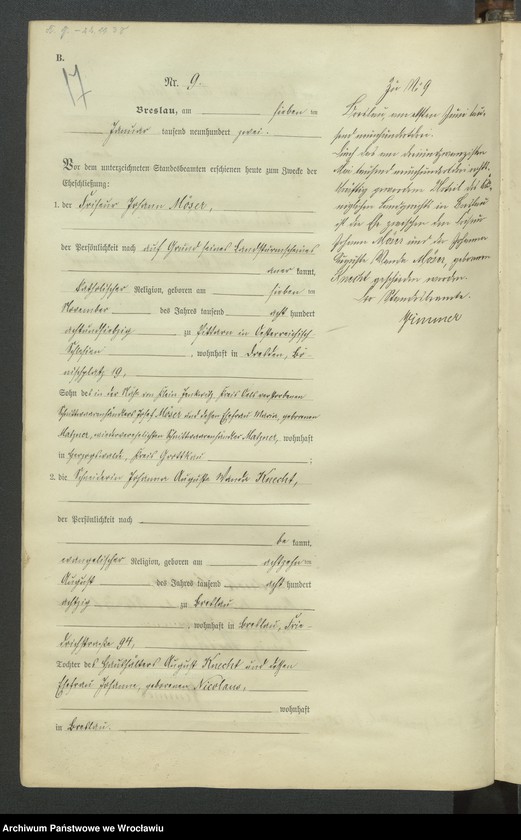 B.
17
Nr. 9.
Breslau, am sieben ten
Januar tausend neunhundert zwei.
Vor dem unterzeichneten Standesbeamten erschienen heute zum Zwecke der
Eheschließung:
1. der Friseur Johann Möser,
der Persönlichkeit nach auf Grund seines Landsturmscheines
aner kannt,
katholischer Religion, geboren am sieben ten
November des Jahres tausend acht hundert
achtundsiebzig zu in Oesterreichisch
Schlesien, wohnhaft in Dresden,
nischplatz 19,
Sohn des in der Nähe von Klein Kreis Oels verstorbenen
Schnittwarenhändlers Josef Möser und dessen Ehefrau Maria, geborenen
Matzner, wiederverehelichten Schnittwarenhändler Matzner, wohnhaft
in Herzogswalde, Kreis Grottkau;
2. die Schneiderin Johanna Auguste Wanda Knecht,
der Persönlichkeit nach
be kannt,
evangelischer Religion, geboren am achtzehn ten
August des Jahres tausend acht hundert
achtzig zu Breslau
, wohnhaft in Breslau, Frie-
drichstraße 94,
Tochter des Haushälters August Knecht und dessen
Ehefrau Johanna, geborenen Nicolaus,
wohnhaft
in Breslau.
Zu Nr 9
Breslau, am elften Juni tau-
send neunhundertdrei.
Durch das am dreiundzwanzigsten
Mai tausend neunhundertdrei rechts-
kräftig gewordene Urteil des Kö-
niglichen Landgerichts in Breslau
ist die Ehe zwischen dem Friseur
Johann Möser und der Johanna
Auguste Wanda Möser, geborenen
Knecht geschieden worden.
Der Standesbeamte.
Zimmer
Archiwum Państwowe we Wrocławiu